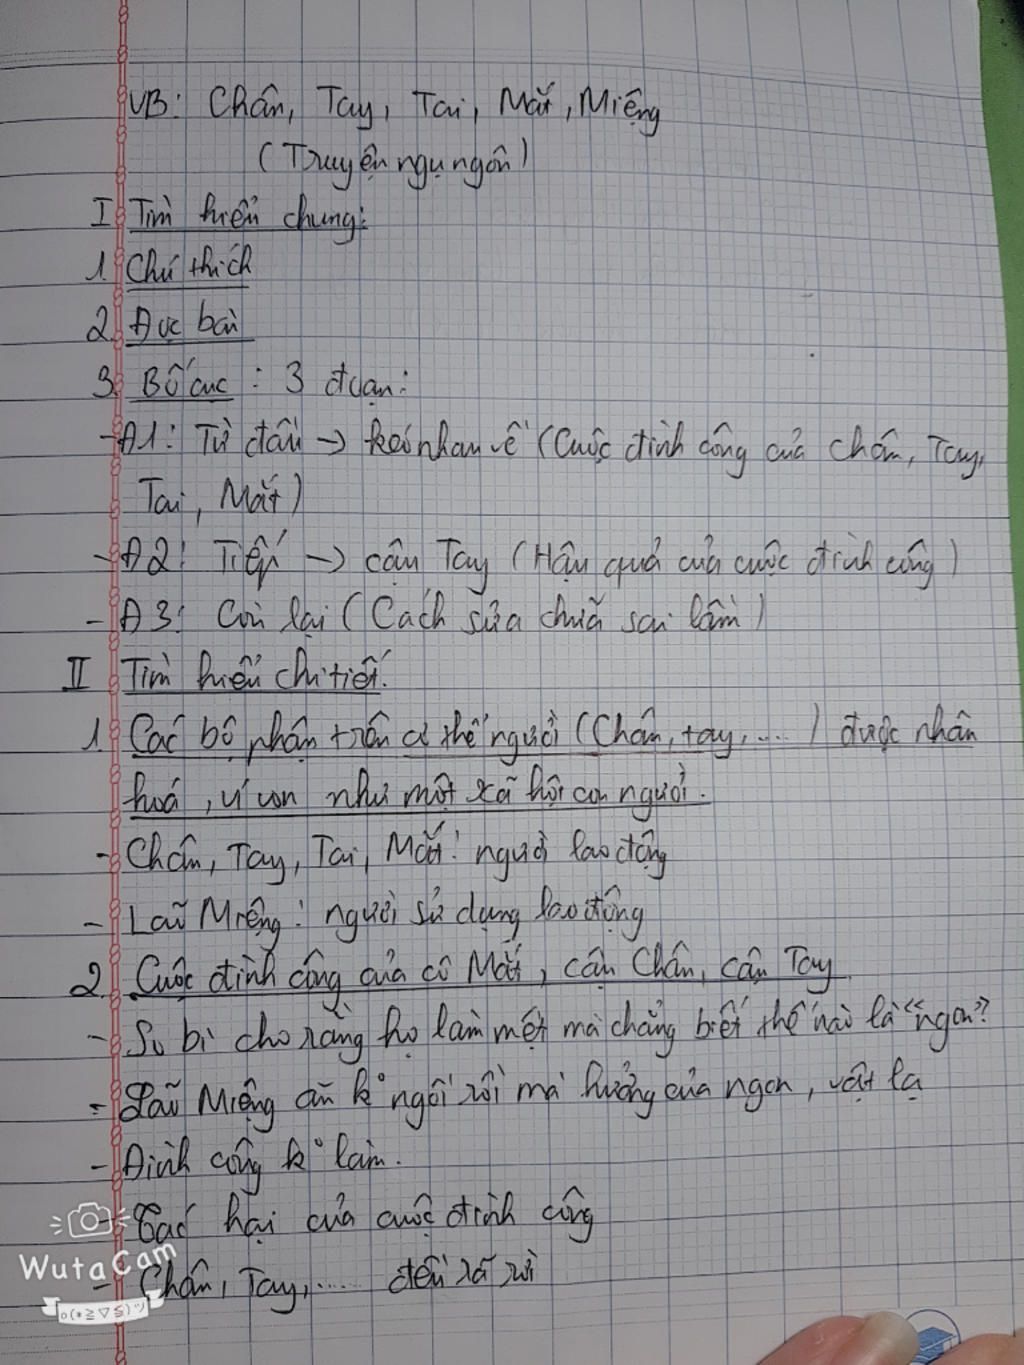 VB: Chân, Tay, Tai, Mắt, Miệng
(Truyện ngụ ngôn)
I Tìm hiểu chung:
1. Chú thích
2. Đọc bài
3. Bố cục: 3 đoạn:
- Đ1: Từ đầu → kéo nhau về (Cuộc đình công của Chân, Tay,
Tai, Mắt)
- Đ2: Tiếp → cậu Tay (Hậu quả của cuộc đình công)
- Đ3: Còn lại (Cách sửa chữa sai lầm)
II Tìm hiểu chi tiết.
1 Các bộ phận trên cơ thể người (Chân, tay, ....) được nhân
hoá, ví von như một xã hội con người.
- Chân, Tay, Tai, Mắt: người lao động
- Lão Miệng: người sử dụng lao động
2. Cuộc đình công của cô Mắt, cậu Chân, cậu Tay
- So bì cho rằng họ làm mệt mà chẳng biết thế nào là "ngon"
- Lão Miệng ăn k° ngồi rồi mà hưởng của ngon, vật lạ
- Đình công k° làm.
- Tác hại của cuộc đình công
- Chân, Tay, ..... đều rã rời
WutaCam
o(*≧▽≦)ツ